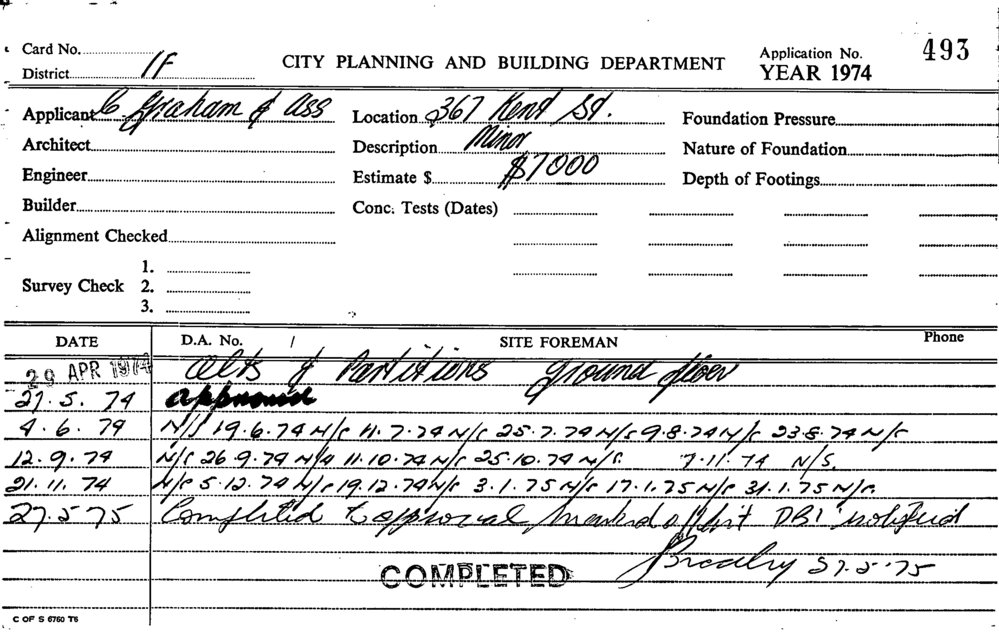 Card No. Application No. 493
District 1F CITY PLANNING AND BUILDING DEPARTMENT YEAR 1974
Applicant C Graham & Ass Location 367 Kent St. Foundation Pressure
Architect Description Minor Nature of Foundation
Engineer Estimate $ $7000 Depth of Footings
Builder Conc. Tests (Dates)
Alignment Checked
1.
Survey Check 2.
3.
DATE D.A. No. / SITE FOREMAN Phone
29 APR 1974 Alts & Partitions Ground floor
27.5.74 approved
4.6.74 N/S 19.6.74 N/S 11.7.74 N/S 25.7.74 N/S 9.8.74 N/S 23.8.74 N/S
12.9.74 N/S 26.9.74 N/S 11.10.74 N/S 25.10.74 N/S. 7.11.74 N/S.
21.11.74 N/S 5.12.74 N/S 19.12.74 N/S 3.1.75 N/S 17.1.75 N/S 31.1.75 N/S.
27.5.75 Completed to approval DBI notified
27.5.75
COMPLETED
C OF S 6760 T6